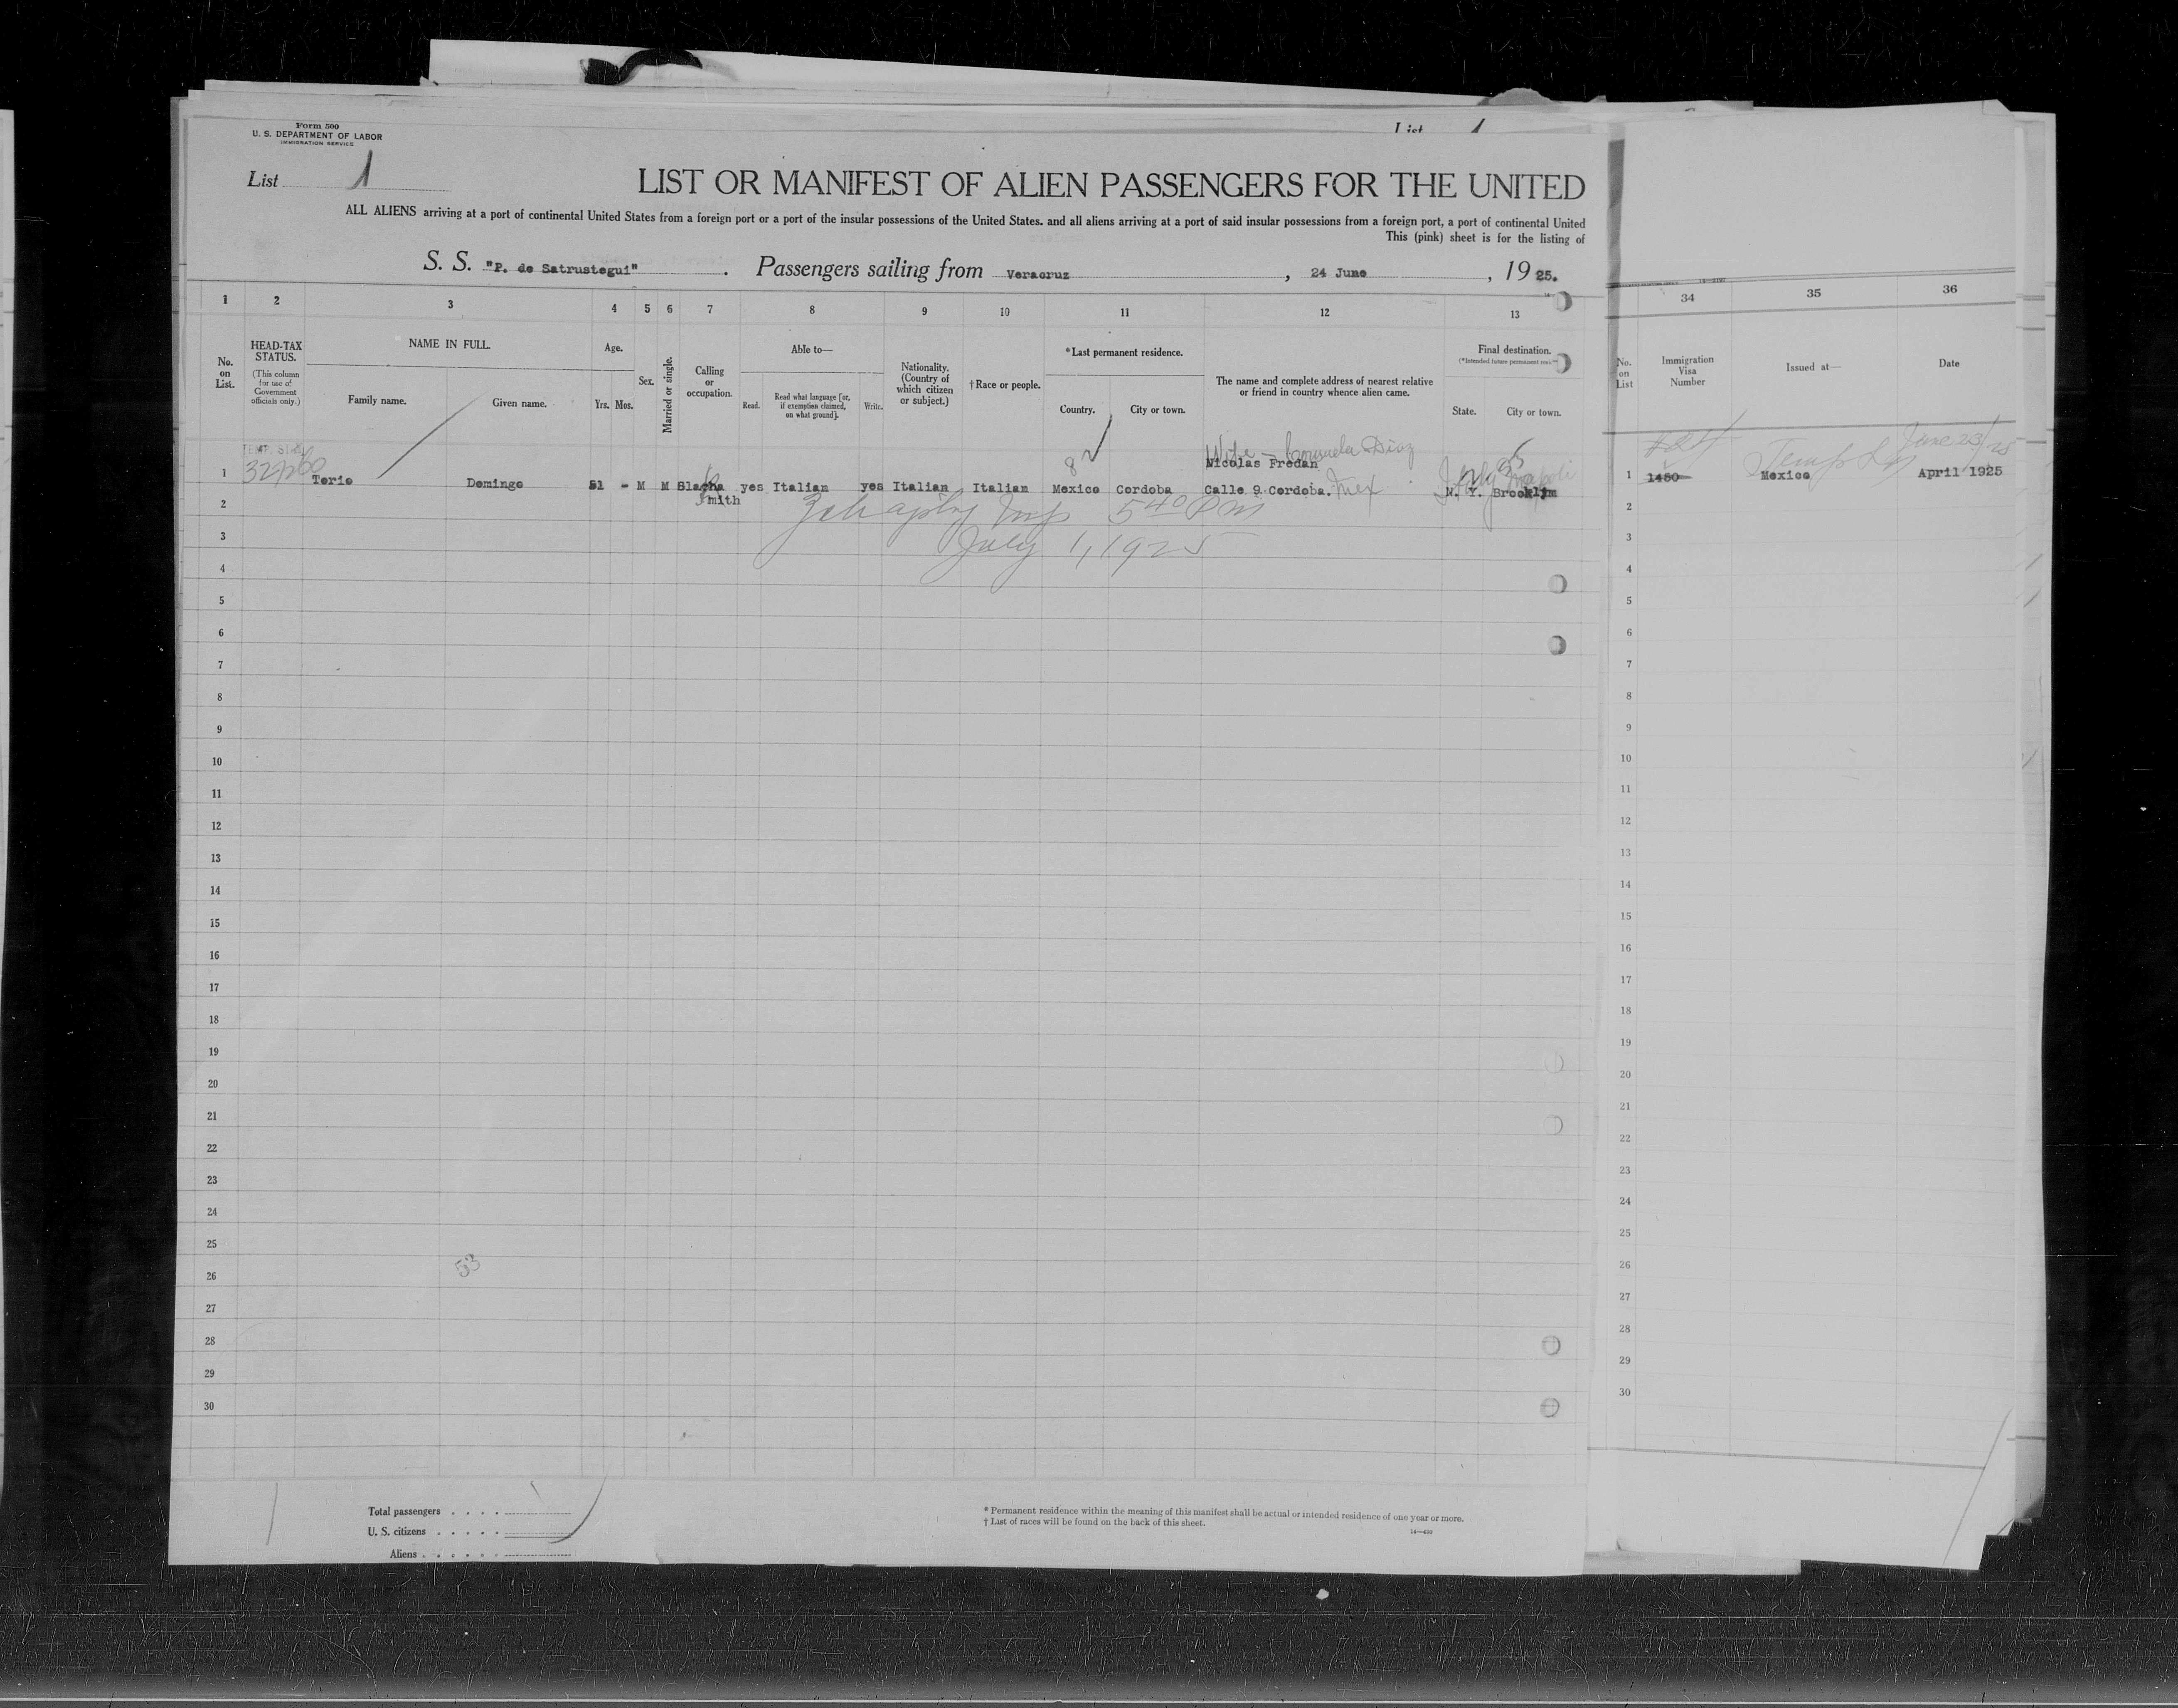 Form 500
U. S. DEPARTMENT OF LABOR
IMMIGRATION SERVICE
List 1
List 1
LIST OR MANIFEST OF ALIEN PASSENGERS FOR THE UNITED
ALL ALIENS arriving at a port of continental United States from a foreign port or a port of the insular possessions of the United States, and all aliens arriving at a port of said insular possessions from a foreign port, a port of continental United
This (pink) sheet is for the listing of
S. S. "P. de Satrustegui" . Passengers sailing from Veracruz , 24 June , 1925.
1 2 3 4 5 6 7 8 9 10 11 12 13 34 35 36
No. on List.
HEAD-TAX STATUS.
(This column for use of Government officials only.)
NAME IN FULL.
Family name. Given name.
Age.
Yrs. Mos.
Sex.
Married or single.
Calling or occupation.
Able to—
Read. Read what language [or, if exemption claimed, on what ground]. Write.
Nationality. (Country of which citizen or subject.)
†Race or people.
*Last permanent residence.
Country. City or town.
The name and complete address of nearest relative or friend in country whence alien came.
Final destination.
(*Intended future permanent
State. City or town.
No. on List
Immigration Visa Number
Issued at—
Date
June 23/25
8
Wife - Consuela Diaz
Nicolas Fredan
1 Torio Domingo 51 - M M Blacha yes Italian yes Italian Italian Mexico Cordoba Calle 9 Cordoba. Mex N. Y. Brooklym
Smith
Italy Napoli
1 1450 Mexico April 1925
5 40 PM
July 1, 1925
2 2
3 3
4 4
5 5
6 6
7 7
8 8
9 9
10 10
11 11
12 12
13 13
14 14
15 15
16 16
17 17
18 18
19 19
20 20
21 21
22 22
23 23
24 24
25 25
26 26
27 27
28 28
29 29
30 30
53
Total passengers
U. S. citizens
Aliens
* Permanent residence within the meaning of this manifest shall be actual or intended residence of one year or more.
† List of races will be found on the back of this sheet.